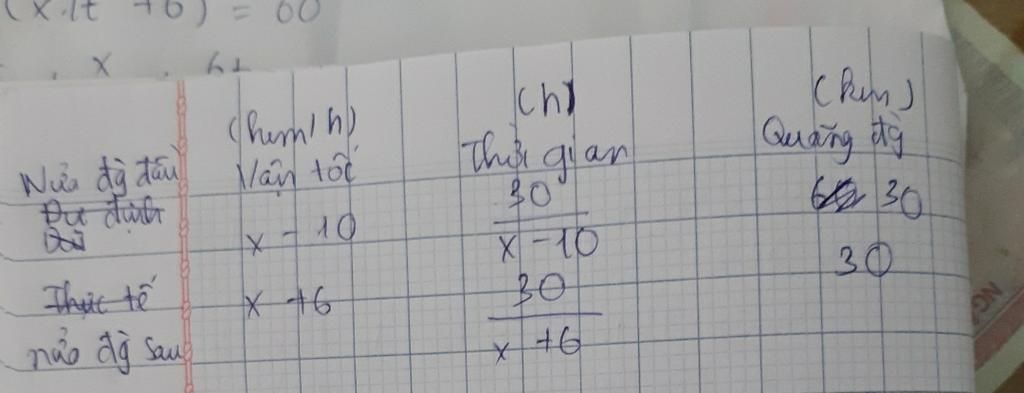 (x.1t +6) = 60
x 6t
(km/h) (h) (km)
Nửa đg đầu Vận tốc Thời gian Quãng đg
Dự định x - 10 30/x - 10 30
Thực tế x + 6 30/x + 6 30
nửa đg sau